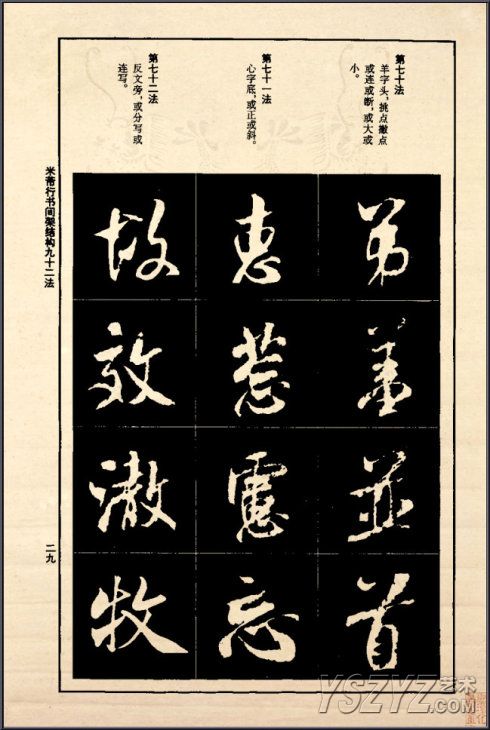 第七十法
羊字头，挑点撇点
或连或断，或大或
小。
弟
羊
並
首
第七十一法
心字底，或正或斜。
惠
惹
慮
忘
第七十二法
反文旁，或分写或
连写。
故
效
澈
牧
米芾行书间架结构九十二法
二九
YSZYZ艺术
.COM